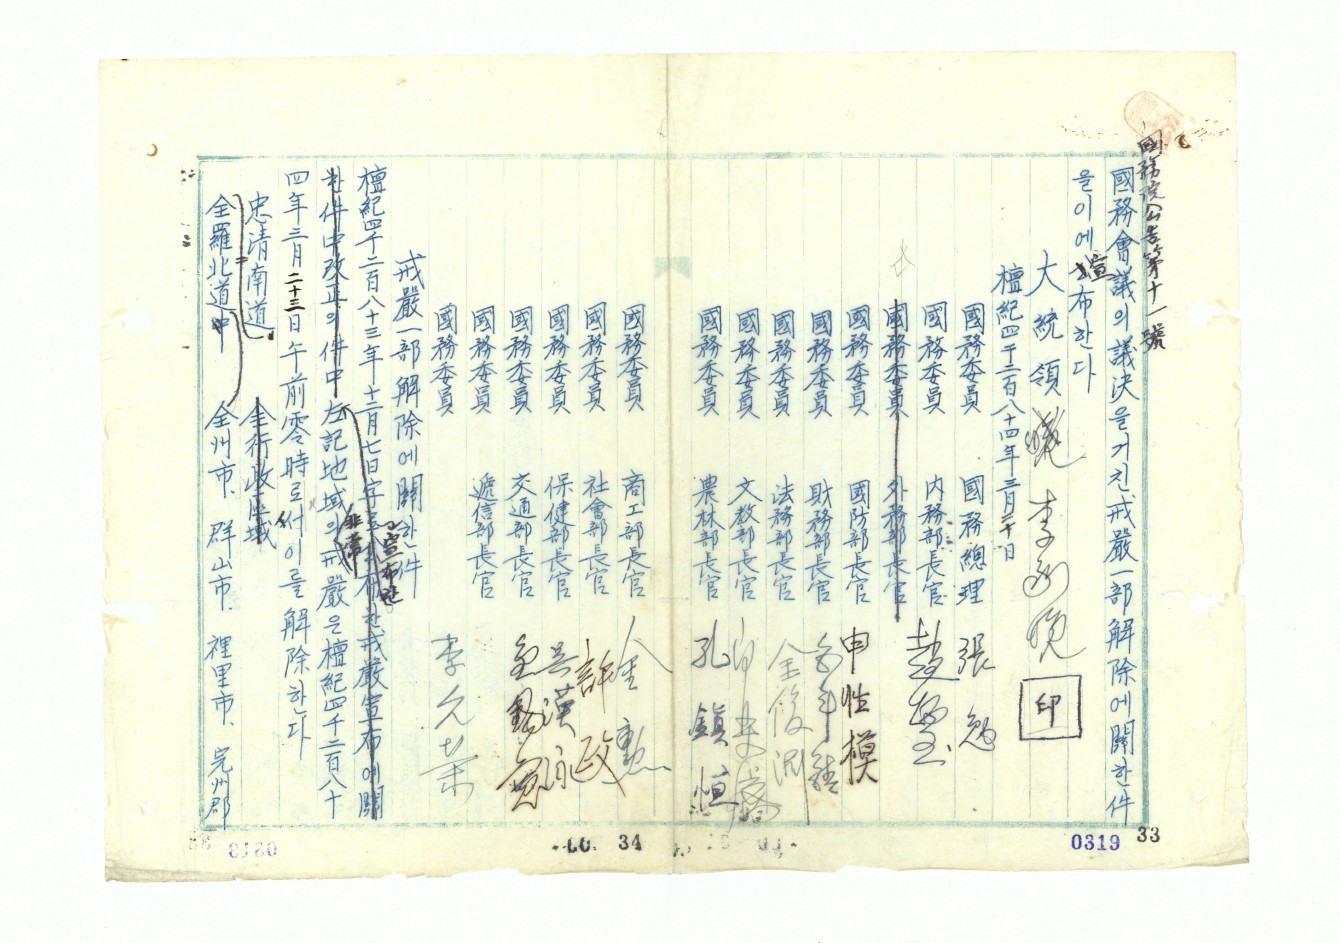 國務院公告第十一號
國務會議의議決을거친戒嚴一部解除에關한件
을이에宣布한다
大統領 李承晩 印
檀紀四千二百八十四年三月二十日
國務委員 國務總理 張勉
國務委員 內務部長官 趙
國務委員 外務部長官
國務委員 國防部長官 申性模
國務委員 財務部長官
國務委員 法務部長官 金俊淵
國務委員 文敎部長官
國務委員 農林部長官 孔鎭恒
國務委員 商工部長官 金勳
國務委員 社會部長官 許政
國務委員 保健部長官 吳漢泳
國務委員 交通部長官 金錫
國務委員 遞信部長官
國務委員 李允榮
戒嚴一部解除에關한件
檀紀四千二百八十三年十二月七日字로宣布한戒嚴宣布에關
한件中改正의件中左記地域의非常戒嚴은檀紀四千二百八十
四年三月二十三日午前零時로서이를解除한다
忠淸南道 全行政區域
全羅北道中 全州市、群山市、裡里市、完州郡
0319 33
34